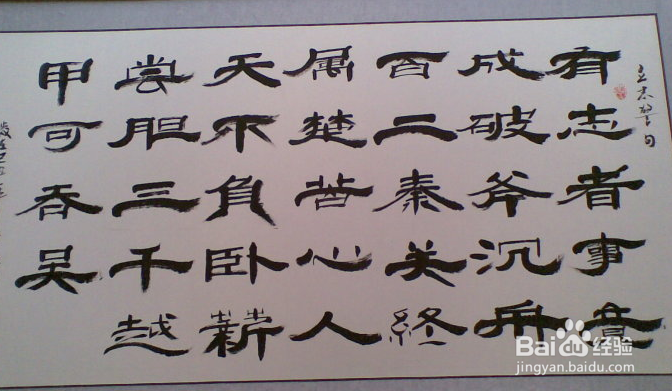 立志警句
有志者事竟
成破斧沉舟
百二秦关終
属楚苦心人
天不负卧薪
尝胆三千越
甲可吞吴
Baidu经验
jingyan.baidu.com